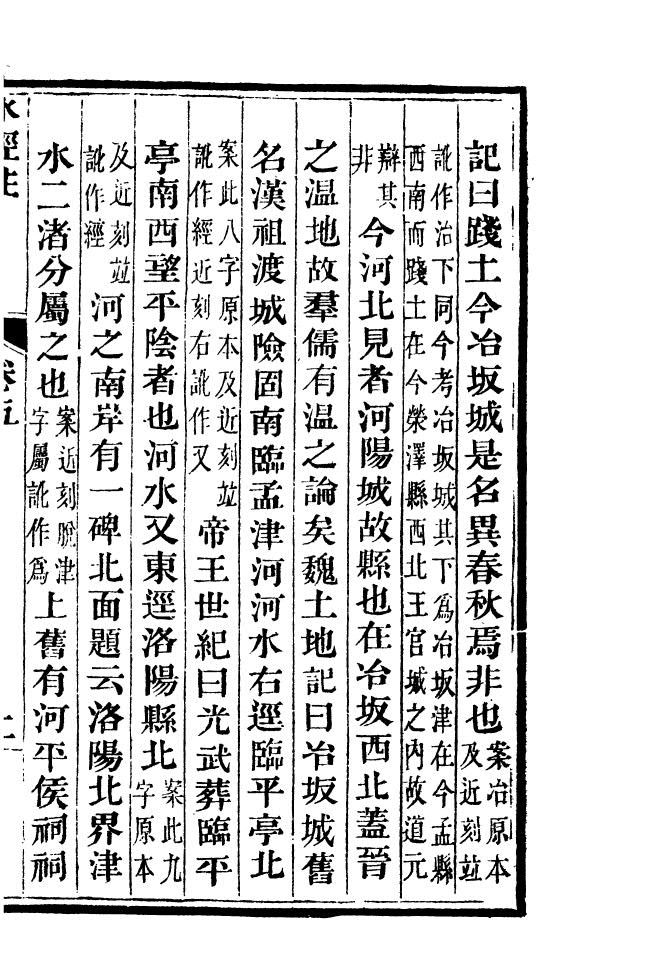 記曰踐土今冶坂城是名異春秋焉非也案冶原本及近刻竝
訛作治下同今考冶坂城其下爲冶坂津在今孟縣西南而踐土在今滎澤縣西北王官城之內故道元
辯其非今河北見者河陽城故縣也在冶坂西北蓋晉
之温地故羣儒有温之論矣魏土地記曰冶坂城舊
名漢祖渡城險固南臨孟津河河水右逕臨平亭北
案此八字原本及近刻竝訛作經近刻右訛作又帝王世紀曰光武葬臨平
亭南西望平陰者也河水又東逕洛陽縣北案此九字原本
及近刻竝訛作經河之南岸有一碑北面題云洛陽北界津
水二渚分屬之也案近刻脫津字屬訛作爲上舊有河平侯祠祠
水經注 卷五 十一